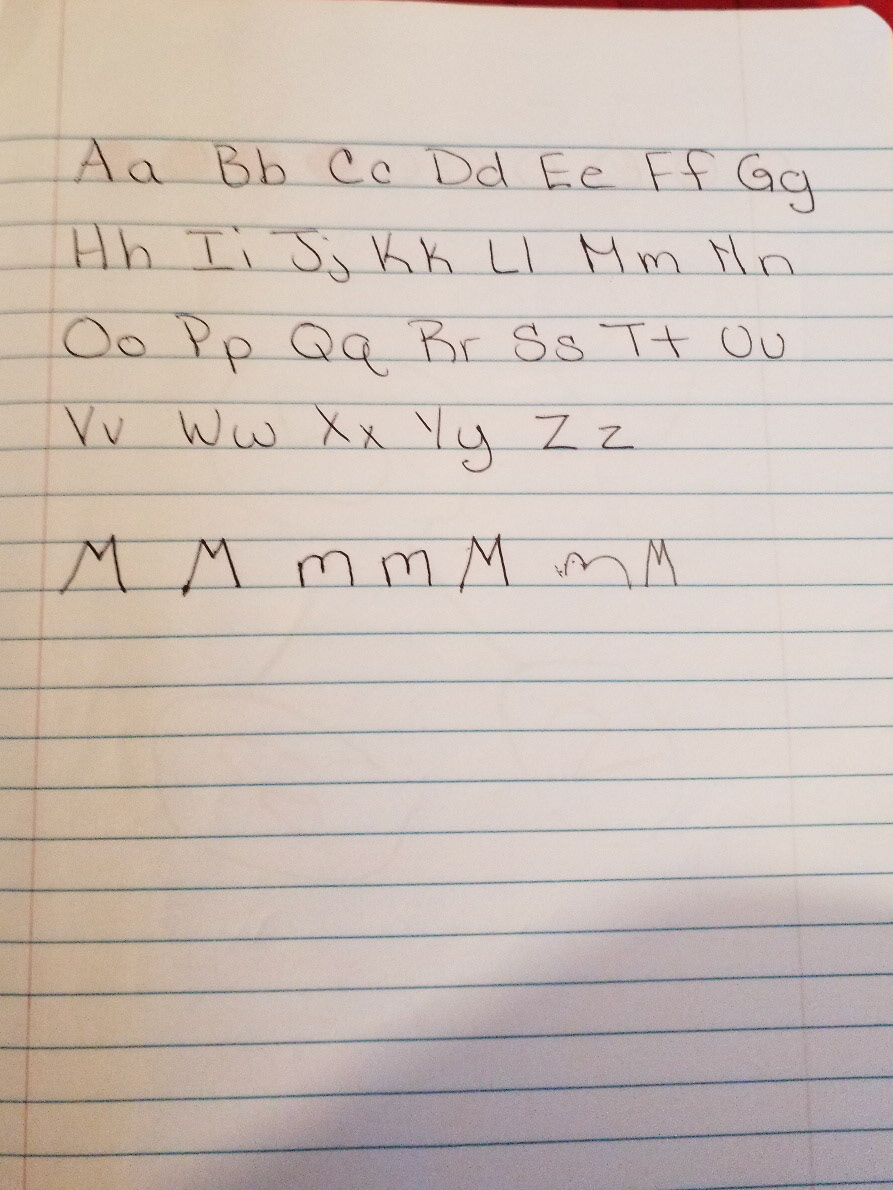 Aa Bb Cc Dd Ee Ff Gg
Hh Ii Jj Kk Ll Mm Nn
Oo Pp Qq Rr Ss Tt Uu
Vv Ww Xx Yy Zz
M M m m M m M